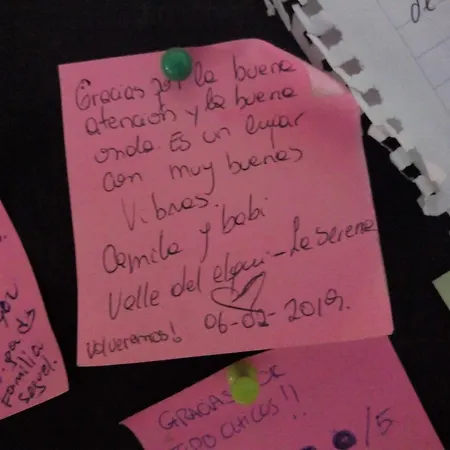 Gracias por la buena
atención y la buena
onda. Es un lugar
con muy buenas
Vibras.
Camila y babi
Valle del elqui - La Serena
06-02-2019.
Volveremos!
familia
GRACIAS
CHICOS!!
/5
de